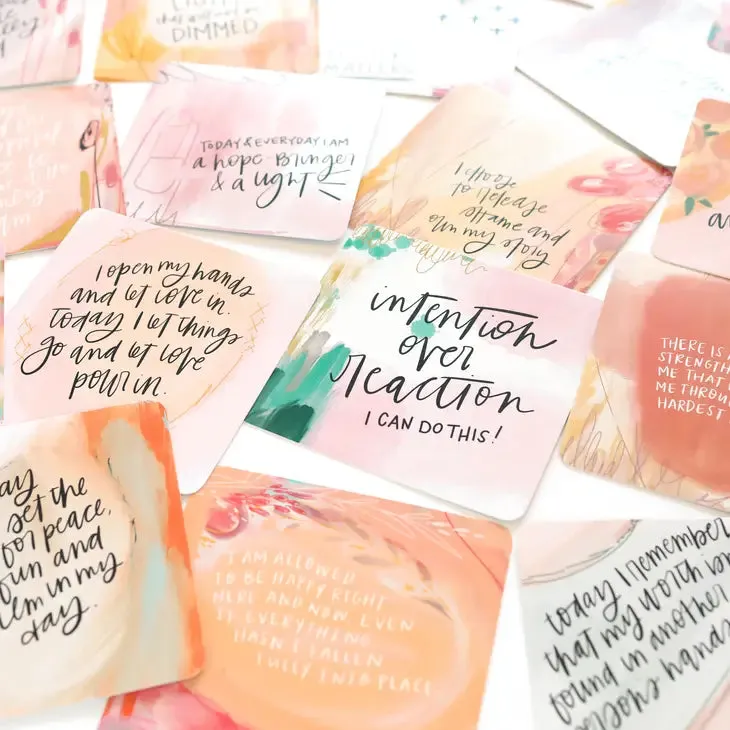 DIMMED
TODAY & EVERYDAY I AM
a hope-bringer
& a light
I choose
to release
shame and
own my story
I open my hands
and let love in.
today I let things
go and let love
pour in.
intention
over
reaction
I CAN DO THIS!
THERE IS
STRENGTH
ME THAT
ME THROU
HARDEST
set the
for peace,
fun and
em in my
day.
I AM ALLOWED
TO BE HAPPY RIGHT
HERE AND NOW, EVEN
IF EVERYTHING
HASN'T FALLEN
FULLY INTO PLACE
today I remember
that my worth isn
found in another
persons hands